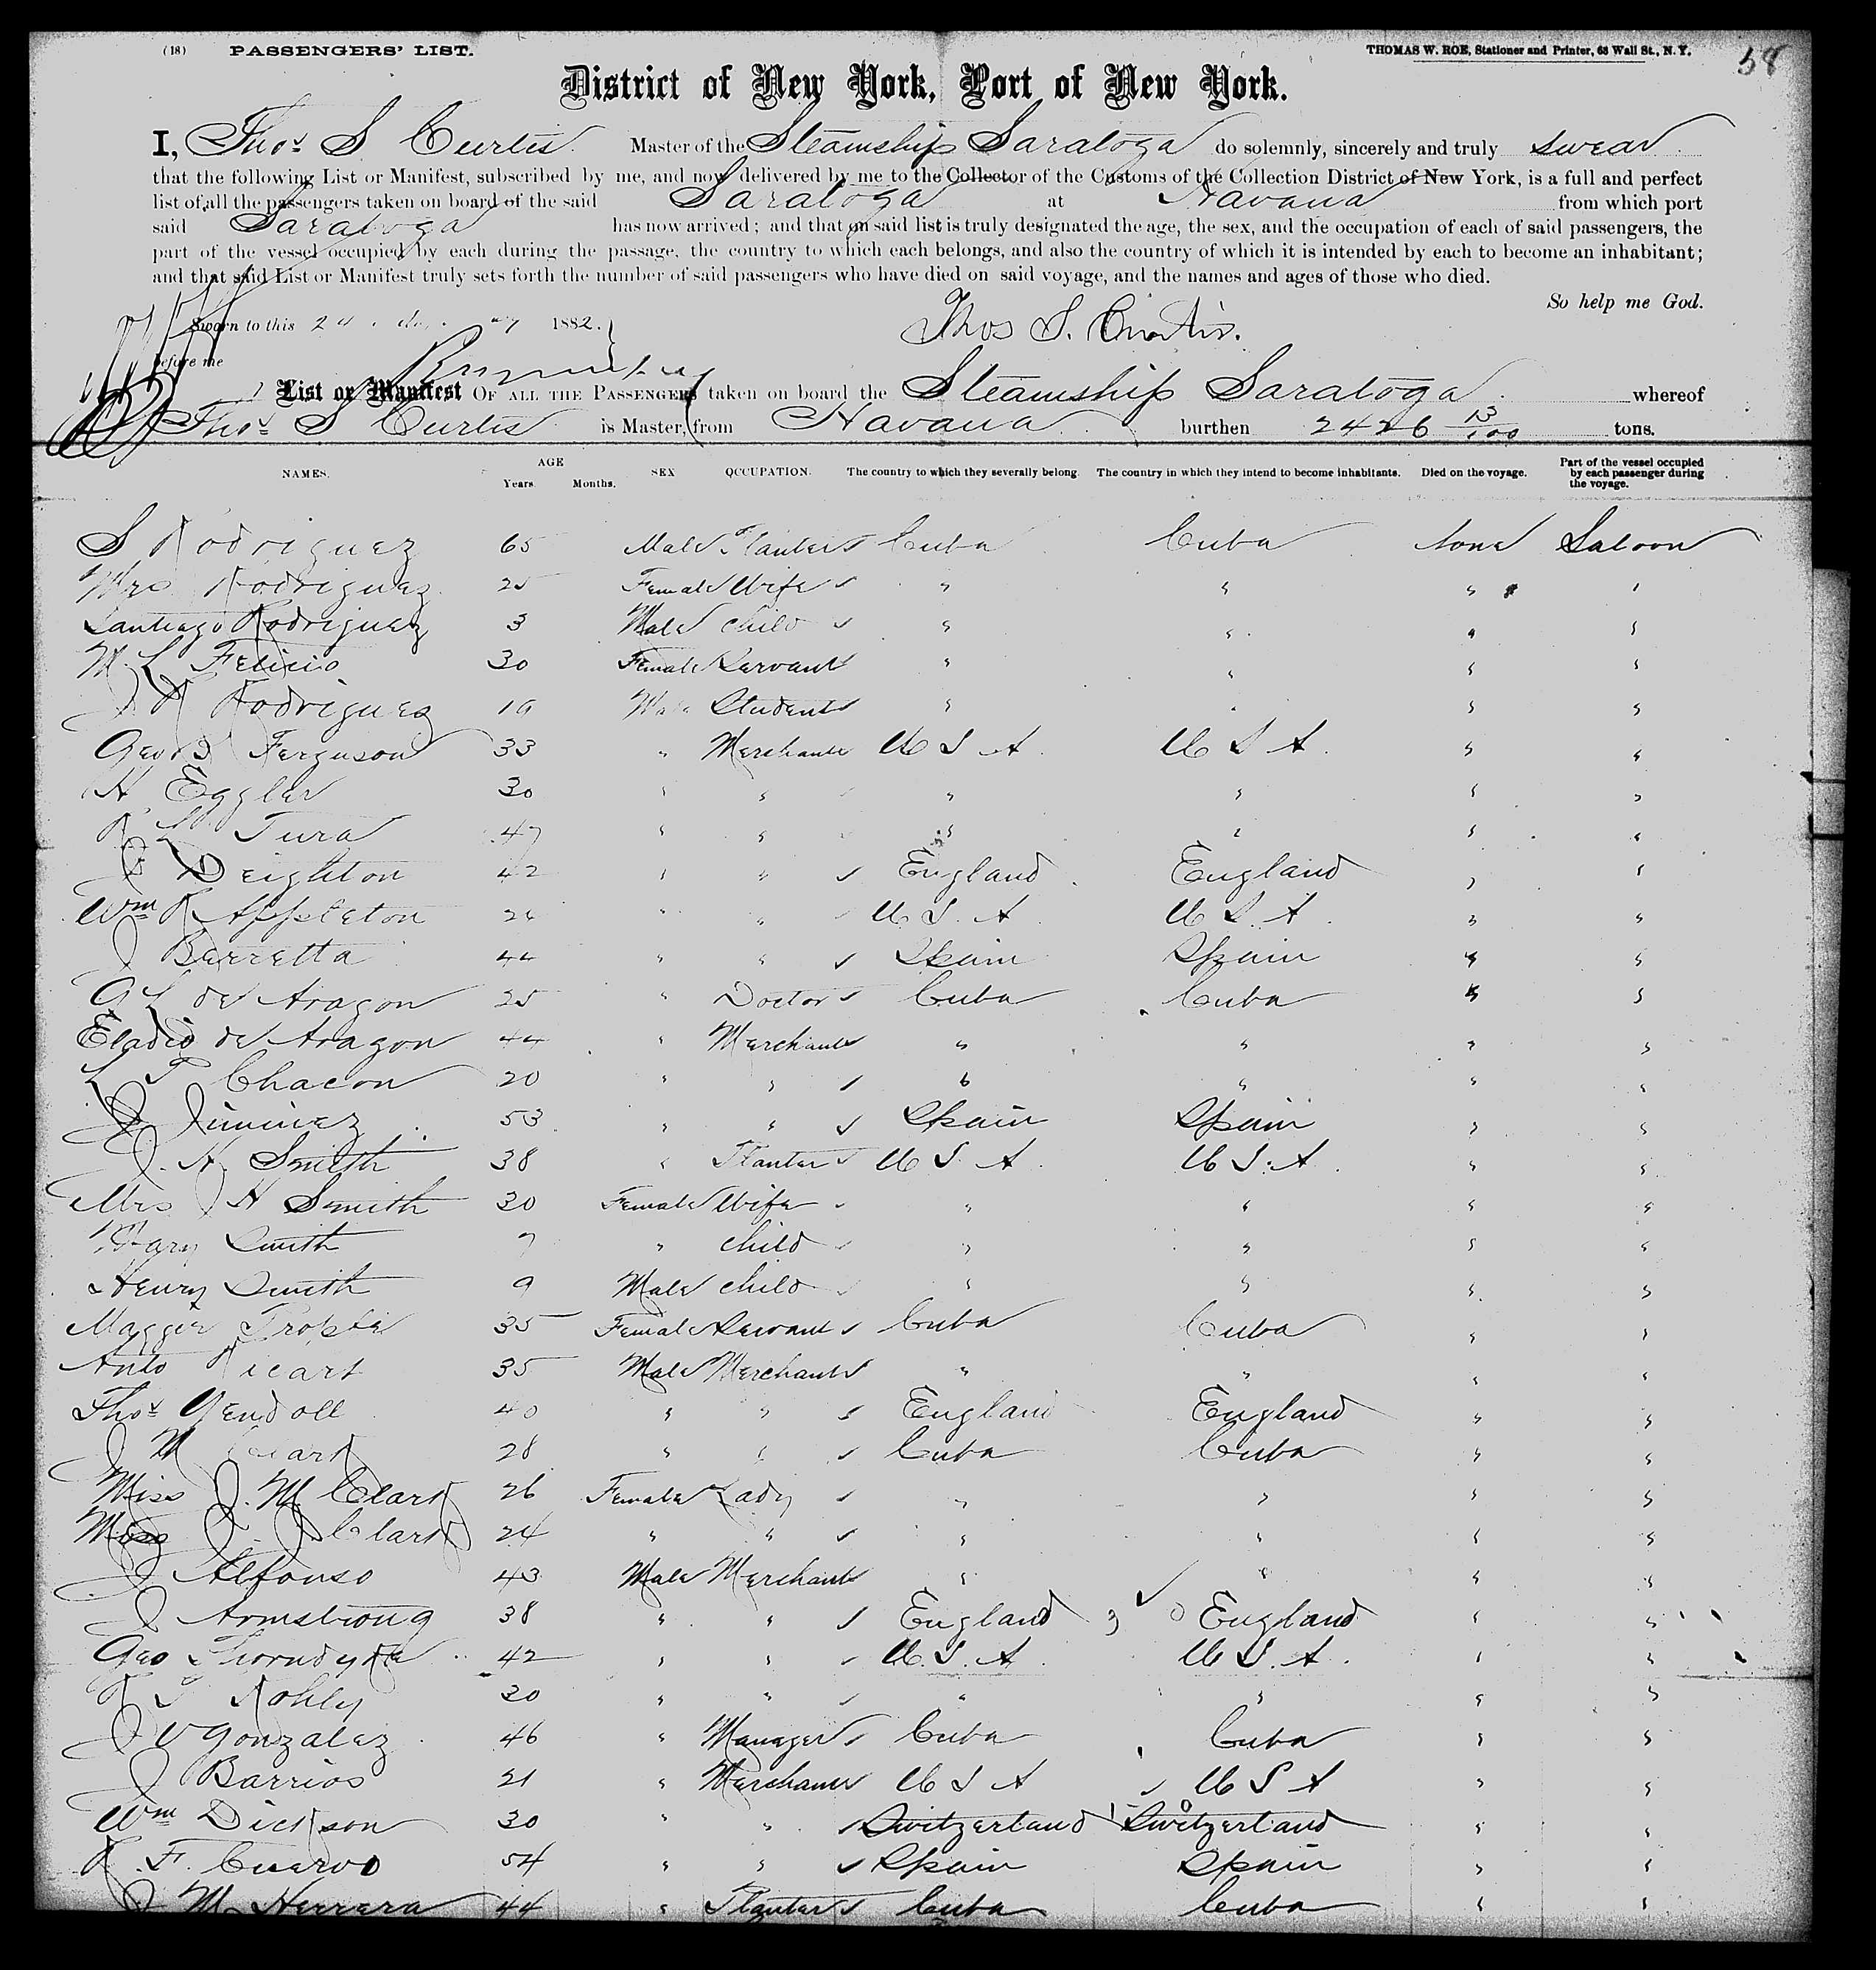 (18) PASSENGERS' LIST. THOMAS W. ROE, Stationer and Printer, 63 Wall St., N. Y. 58
District of New York, Port of New York.
I, Thos S Curtis Master of the Steamship Saratoga do solemnly, sincerely and truly swear
that the following List or Manifest, subscribed by me, and now delivered by me to the Collector of the Customs of the Collection District of New York, is a full and perfect
list of all the passengers taken on board of the said Saratoga at Havana from which port
said Saratoga has now arrived; and that on said list is truly designated the age, the sex, and the occupation of each of said passengers, the
part of the vessel occupied by each during the passage, the country to which each belongs, and also the country of which it is intended by each to become an inhabitant;
and that said List or Manifest truly sets forth the number of said passengers who have died on said voyage, and the names and ages of those who died.
So help me God.
Sworn to this 1882. Thos S. Curtis.
before me
List or Manifest OF ALL THE PASSENGERS taken on board the Steamship Saratoga whereof
Thos S Curtis is Master, from Havana burthen 2426 13/100 tons.
NAMES. AGE Years. Months. SEX OCCUPATION. The country to which they severally belong. The country in which they intend to become inhabitants. Died on the voyage. Part of the vessel occupied by each passenger during the voyage.
S Rodriguez 65 Male Planter Cuba Cuba None Saloon
Mrs Rodriguez 25 Female Wife " " " "
Santiago Rodriguez 3 Male Child " " " "
M. L Felicio 30 Female Servant " " " "
J R Rodriguez 19 Male Student " " " "
Geo S Ferguson 33 " Merchant U S A U S A " "
H Eggler 30 " " " " " "
Tura 47 " " " " " "
J Deighton 42 " " England England " "
Wm R Appleton 26 " " U. S. A U S A " "
J Barretta 44 " " Spain Spain " "
G L de Aragon 25 " Doctor Cuba Cuba " "
Eladio de Aragon 44 " Merchant " " " "
Chacon 20 " " " " " "
J Jiminez 53 " " Spain Spain " "
J. H. Smith 38 " Planter U S. A U S. A " "
Mrs J H Smith 30 Female Wife " " " "
Mary Smith 7 " Child " " " "
Henry Smith 9 Male Child " " " "
Maggie 35 Female Servant Cuba Cuba " "
Anto Ricart 35 Male Merchant " " " "
Thos Yendoll 40 " " England England " "
J M Clark 28 " " Cuba Cuba " "
Miss J. M. Clark 26 Female Lady " " " "
Miss J. J Clark 24 " " " " " "
J Alfonso 43 Male Merchant " " " "
J Armstrong 38 " " England England " "
Geo Thorndyke 42 " " U. S. A U S. A. " "
R S Kohly 30 " " " " " "
J V Gonzalez 46 " Manager Cuba Cuba " "
J Barrios 21 " Merchant U S A U S A " "
Wm Dickson 30 " " Switzerland Switzerland " "
R. F. Cuervo 54 " " Spain Spain " "
J M Herrera 44 " Planter Cuba Cuba " "